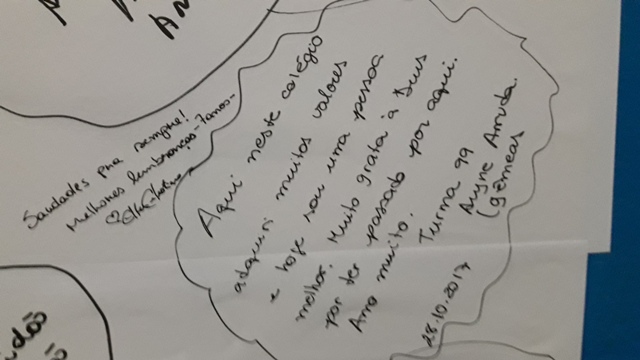 Aqui neste colégio
adquiri muitos valores
e hoje sou uma pessoa
melhor. Muito grata à Deus
por ter passado por aqui.
Amo muito.
Turma 99
Auyne Arruda.
(gêmeas
28.10.2017
Saudades pra sempre!
Melhores lembranças - 7 anos -